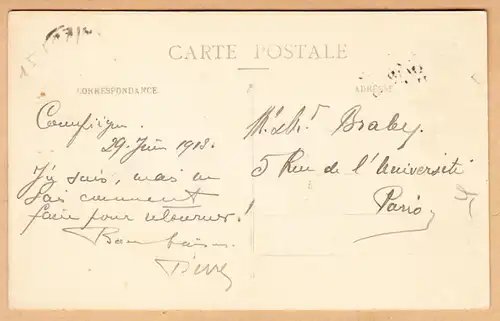 CARTE POSTALE
CORRESPONDANCE
ADRESSE
Compiègne
29 Juin 1913.
J'y suis, mais ne
sais comment
faire pour retourner!
Bons baisers
Pierre
Braby.
5 Rue de l'Université
Paris